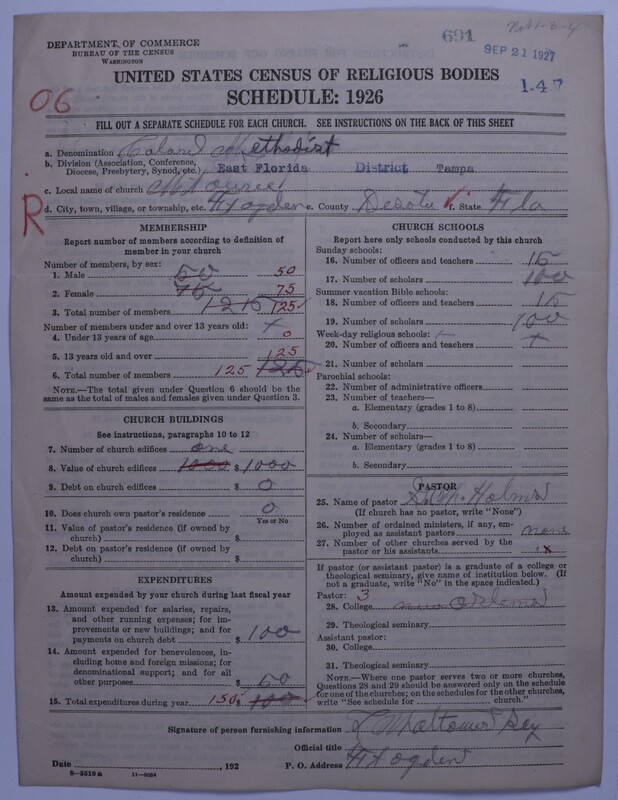 691
SEP 21 1927
1-47
DEPARTMENT OF COMMERCE
BUREAU OF THE CENSUS
WASHINGTON
UNITED STATES CENSUS OF RELIGIOUS BODIES
SCHEDULE: 1926
06
FILL OUT A SEPARATE SCHEDULE FOR EACH CHURCH. SEE INSTRUCTIONS ON THE BACK OF THIS SHEET
a. Denomination Methodist
b. Division (Association, Conference,
Diocese, Presbytery, Synod, etc.) East Florida District Tampa
c. Local name of church
R
d. City, town, village, or township, etc. Ft Ogden e. County Desota f. State Fla
MEMBERSHIP
Report number of members according to definition of
member in your church
Number of members, by sex:
1. Male 50 50
2. Female 75 75
3. Total number of members 125 125
Number of members under and over 13 years old:
4. Under 13 years of age 0
5. 13 years old and over 125
6. Total number of members 125 125
NOTE.—The total given under Question 6 should be the
same as the total of males and females given under Question 3.
CHURCH BUILDINGS
See instructions, paragraphs 10 to 12
7. Number of church edifices one
8. Value of church edifices 1000 $ 1000
9. Debt on church edifices $ 0
10. Does church own pastor's residence 0
Yes or No
11. Value of pastor's residence (if owned by
church) $
12. Debt on pastor's residence (if owned by
church) $
EXPENDITURES
Amount expended by your church during last fiscal year
13. Amount expended for salaries, repairs,
and other running expenses; for im-
provements or new buildings; and for
payments on church debt $ 100
14. Amount expended for benevolences, in-
cluding home and foreign missions; for
denominational support; and for all
other purposes $ 50
15. Total expenditures during year 150 $ 100
CHURCH SCHOOLS
Report here only schools conducted by this church
Sunday schools:
16. Number of officers and teachers 15
17. Number of scholars 100
Summer vacation Bible schools:
18. Number of officers and teachers 15
19. Number of scholars 100
Week-day religious schools:
20. Number of officers and teachers
21. Number of scholars
Parochial schools:
22. Number of administrative officers
23. Number of teachers—
a. Elementary (grades 1 to 8)
b. Secondary
24. Number of scholars—
a. Elementary (grades 1 to 8)
b. Secondary
PASTOR
25. Name of pastor Holms
(If church has no pastor, write "None")
26. Number of ordained ministers, if any, em-
ployed as assistant pastors none
27. Number of other churches served by the
pastor or his assistants
If pastor (or assistant pastor) is a graduate of a college or
theological seminary, give name of institution below. (If
not a graduate, write "No" in the space indicated.)
Pastor: 3
28. College
29. Theological seminary
Assistant pastor:
30. College
31. Theological seminary
NOTE.—Where one pastor serves two or more churches,
Questions 28 and 29 should be answered only on the schedule
for one of the churches; on the schedules for the other churches,
write "See schedule for church."
Signature of person furnishing information
Official title
Date , 192 P. O. Address Ft Ogden
8-5510 a 11-9064